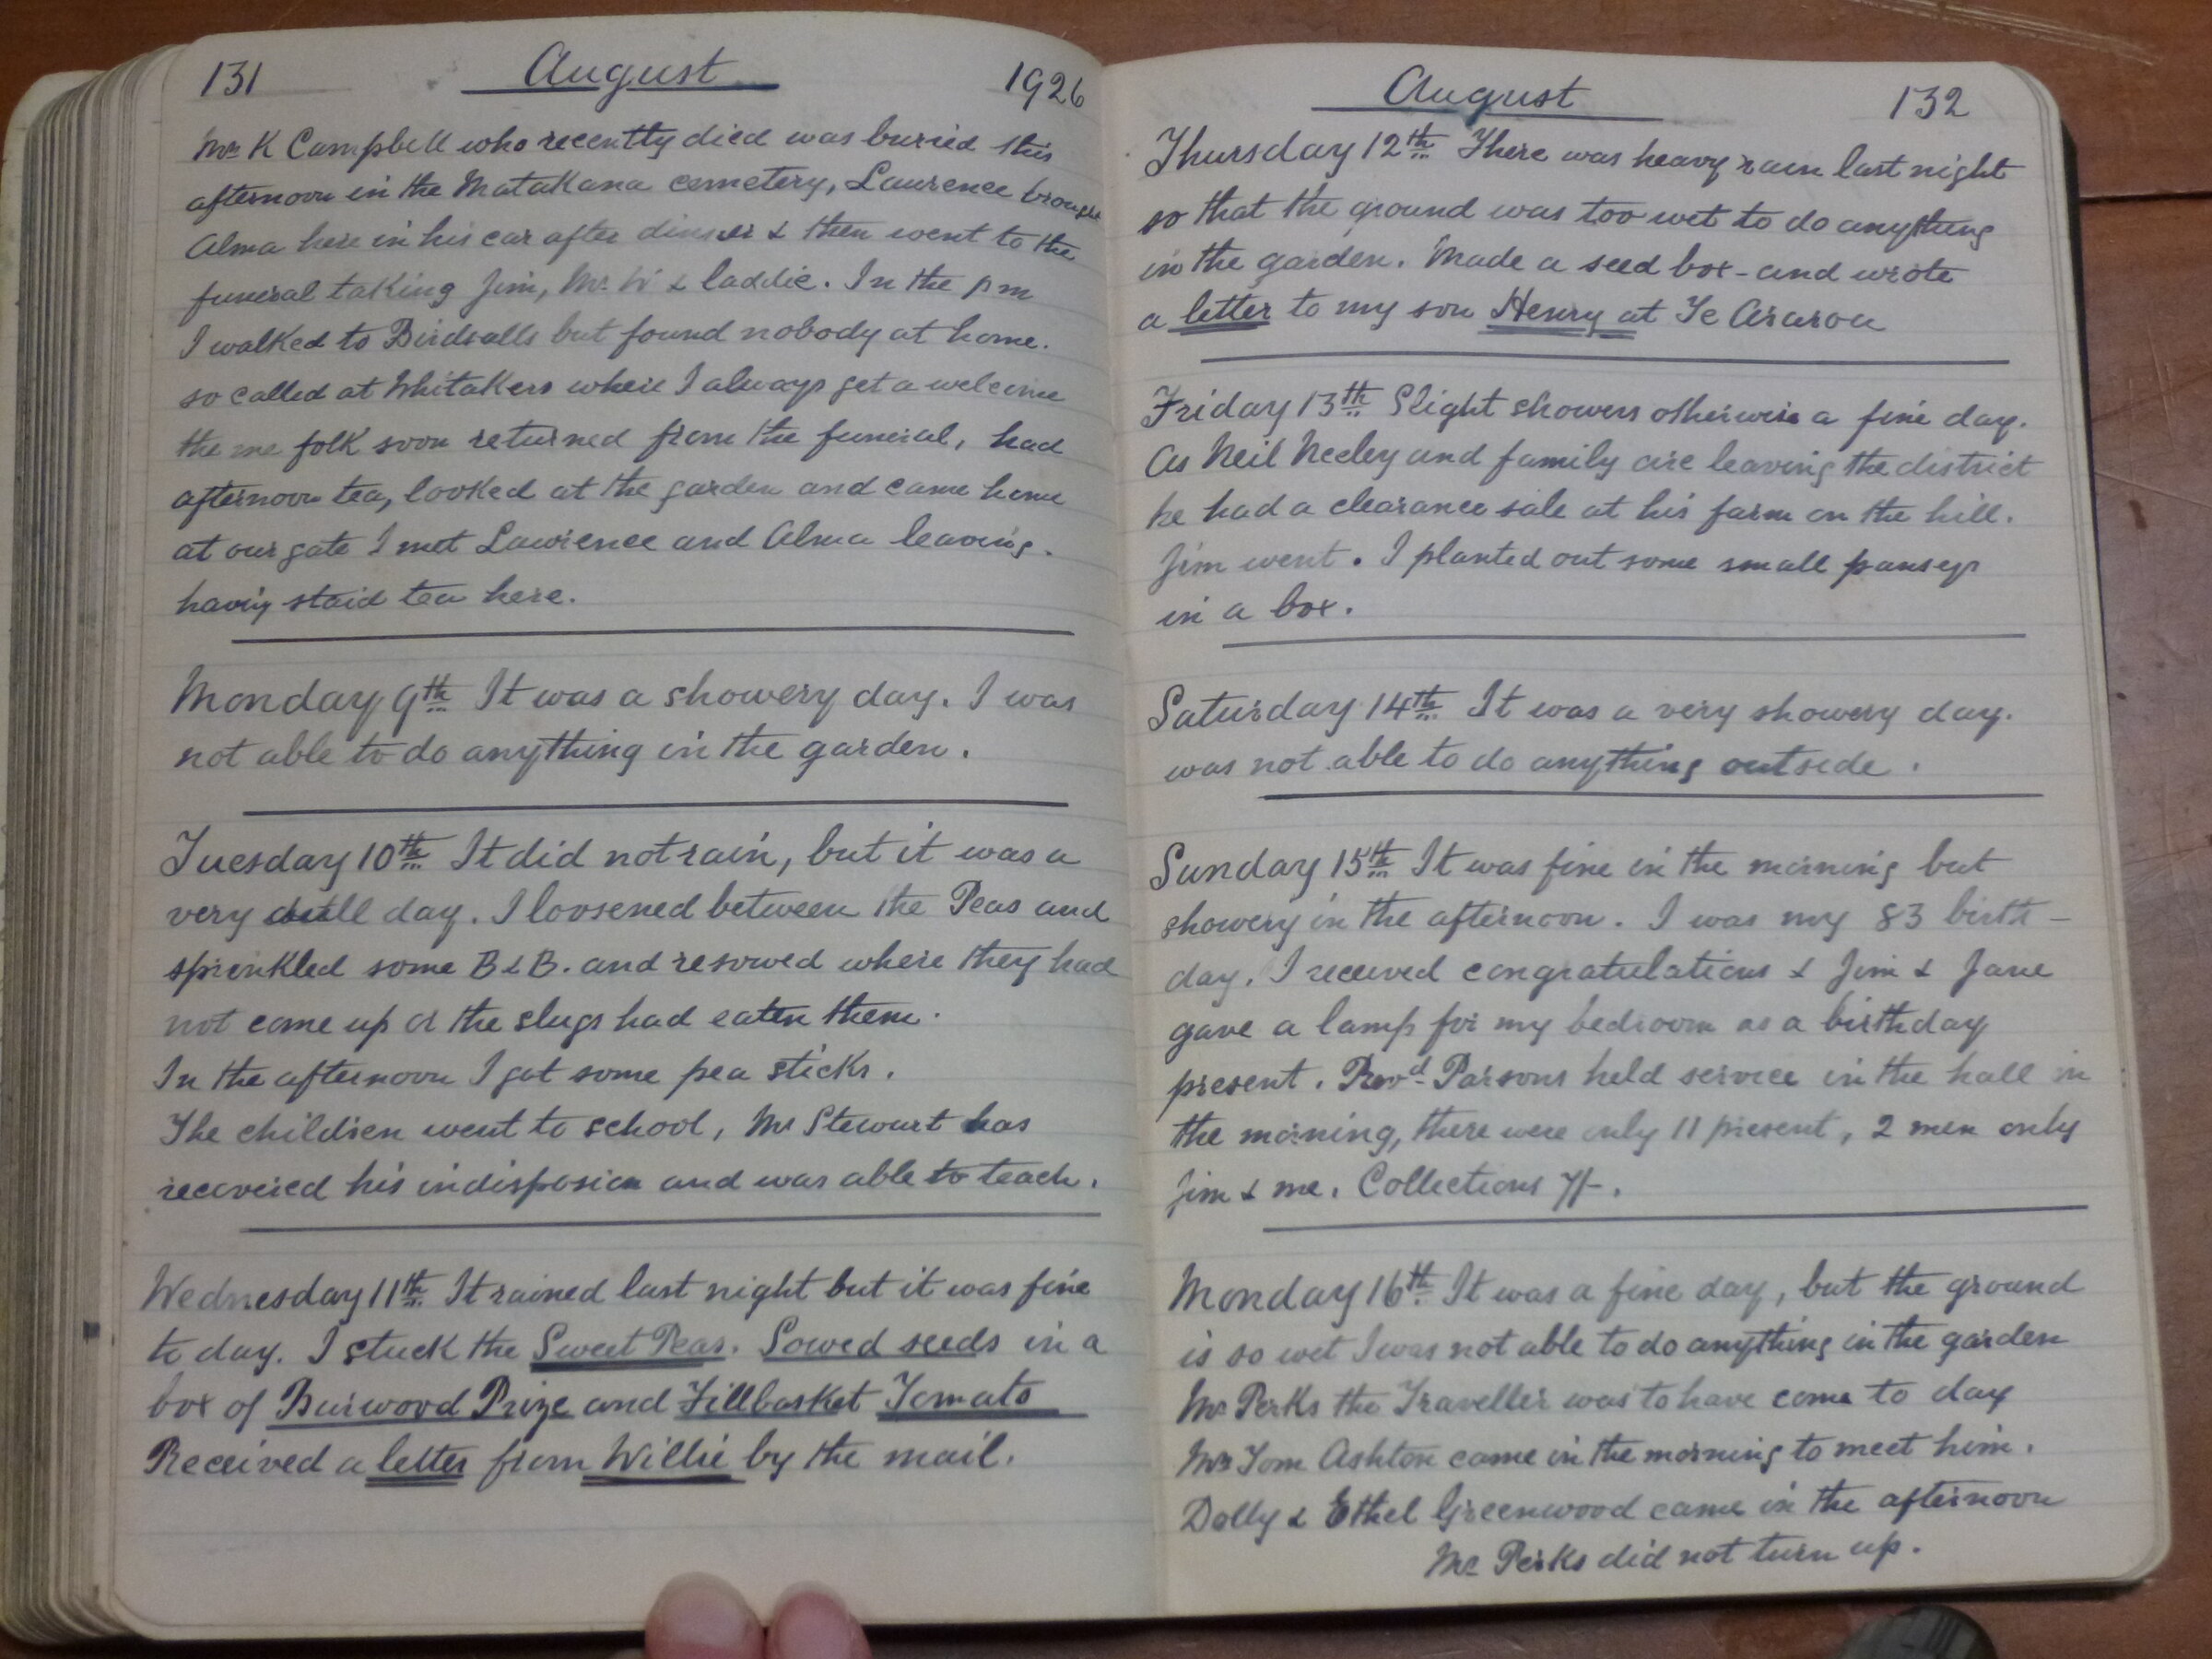 131 August 1926
Mr K Campbell who recently died was buried this
afternoon in the Matakana cemetery, Laurence brought
Alma here in his car after dinner & then went to the
funeral taking Jim, Mr. W & laddie. In the pm
I walked to Birdsalls but found nobody at home.
so called at Whitakers where I always get a welcome
the folk soon returned from the funeral, had
afternoon tea, looked at the garden and came home
at our gate I met Lawrence and Alma leaving.
having staid tea here.
Monday 9th It was a showery day. I was
not able to do anything in the garden.
Tuesday 10th It did not rain, but it was a
very dull day. I loosened between the Peas and
sprinkled some B & B. and resowed where they had
not come up or the slugs had eaten them.
In the afternoon I got some pea sticks.
The children went to school, Mr Stewart has
recovered his indisposion and was able to teach.
Wednesday 11th It rained last night but it was fine
to day. I stuck the Sweet Peas. Sowed seeds in a
box of Burwood Prize and Fillbasket Tomato
Received a letter from Willie by the mail.
August 132
Thursday 12th There was heavy rain last night
so that the ground was too wet to do anything
in the garden. Made a seed box - and wrote
a letter to my son Henry at Te Araroa
Friday 13th Slight showers otherwise a fine day.
As Neil Neeley and family are leaving the district
he had a clearance sale at his farm on the hill.
Jim went. I planted out some small pansys
in a box.
Saturday 14th It was a very showery day.
was not able to do anything outside.
Sunday 15th It was fine in the morning but
showery in the afternoon. I was my 83 birth-
day. I received congratulations & Jim & Jane
gave a lamp for my bedroom as a birthday
present. Revd Parsons held service in the hall in
the morning, there were only 11 present, 2 men only
Jim & me. Collections 7/-.
Monday 16th It was a fine day, but the ground
is so wet I was not able to do anything in the garden
Mr Perks the Traveller was to have come to day
Mrs Tom Ashton came in the morning to meet him.
Dolly & Ethel Greenwood came in the afternoon
Mr Perks did not turn up.